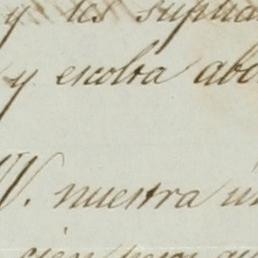 y les suplica
y escolta abo
V. nuestra ú